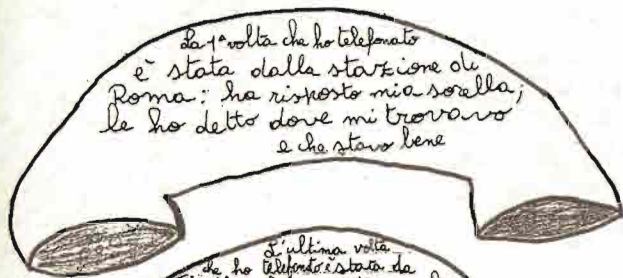 La 1ª volta che ho telefonato
è stata dalla stazione di
Roma: ha risposto mia sorella;
le ho detto dove mi trovavo
e che stavo bene
L'ultima volta
che ho telefonato è stata da